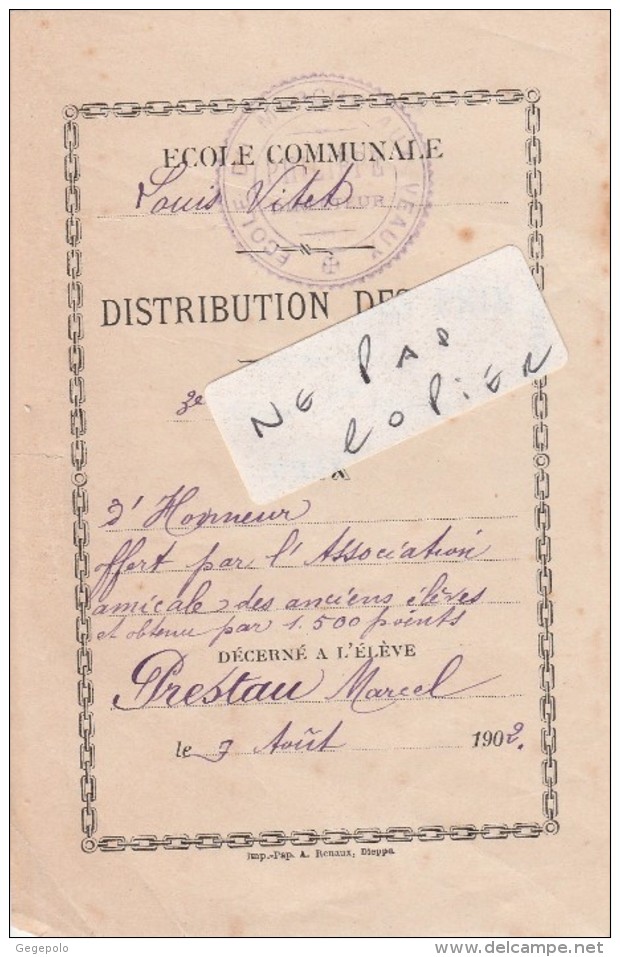 ECOLE COMMUNALE
Louis Vitet
DISTRIBUTION DES
NE PAS
COPIER
3e
d'Honneur
offert par l'Association
amicale des anciens élèves
et obtenu par 1.500 points
DÉCERNÉ A L'ÉLÈVE
Prestau Marcel
le 7 Août 1902.
Imp.-Pap. A. Renaux, Dieppe.
Gegepolo
www.delcampe.net